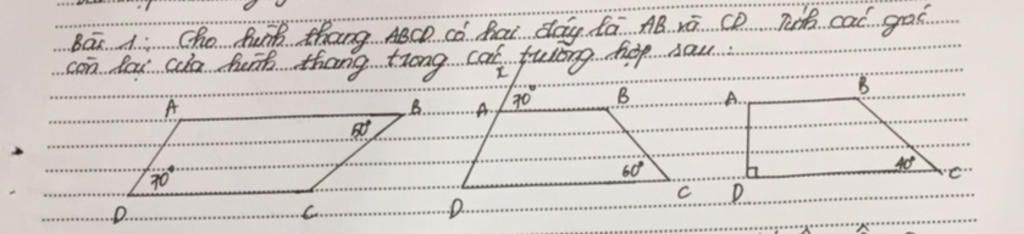 Bài 1: Cho hình thang ABCD có hai đáy là AB và CD. Tính các góc
còn lại của hình thang trong các trường hợp sau:
A B 70° D C
x A 70° B 60° D C
A B 40° D C